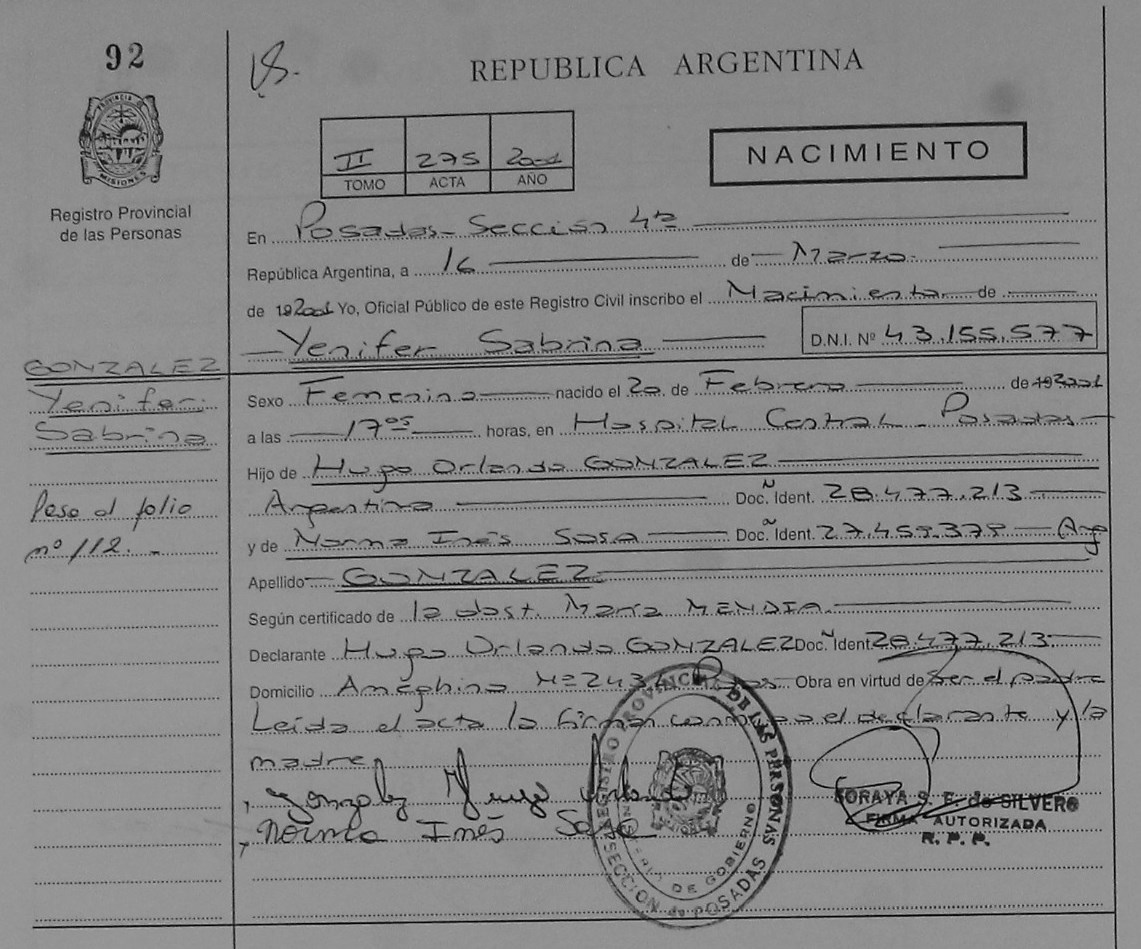 92
REPUBLICA ARGENTINA
PROVINCIA DE MISIONES
II 275 2001
TOMO ACTA AÑO
NACIMIENTO
Registro Provincial
de las Personas
En Posadas - Sección 4ª
República Argentina, a 16 de Marzo
de 192001 Yo, Oficial Público de este Registro Civil inscribo el Nacimiento de
Yenifer Sabrina D.N.I. Nº 43.155.577
GONZALEZ
Yenifer
Sabrina
Sexo Femenino nacido el 20 de Febrero de 192001
a las 17 horas, en Hospital Central - Posadas
Hijo de Hugo Orlando GONZALEZ
Argentino Doc. Ident. 28.477.213
Paso al folio
nº 112.
y de Norma Inés Sosa Doc. Ident. 27.459.378 - Arg
Apellido GONZALEZ
Según certificado de la obst. María MENDIA
Declarante Hugo Orlando GONZALEZ Doc. Ident. 28.477.213
Domicilio Ameghino Nº 2434 Obra en virtud de Ser el padre
Leída el acta la firman conmigo el declarante y la
madre
Gonzalez Hugo Orlando
Norma Inés Sosa
REGISTRO PROVINCIAL DE LAS PERSONAS
DE GOBIERNO
SECCION de POSADAS
SORAYA S. E. de SILVERO
FIRMA AUTORIZADA
R. P. P.